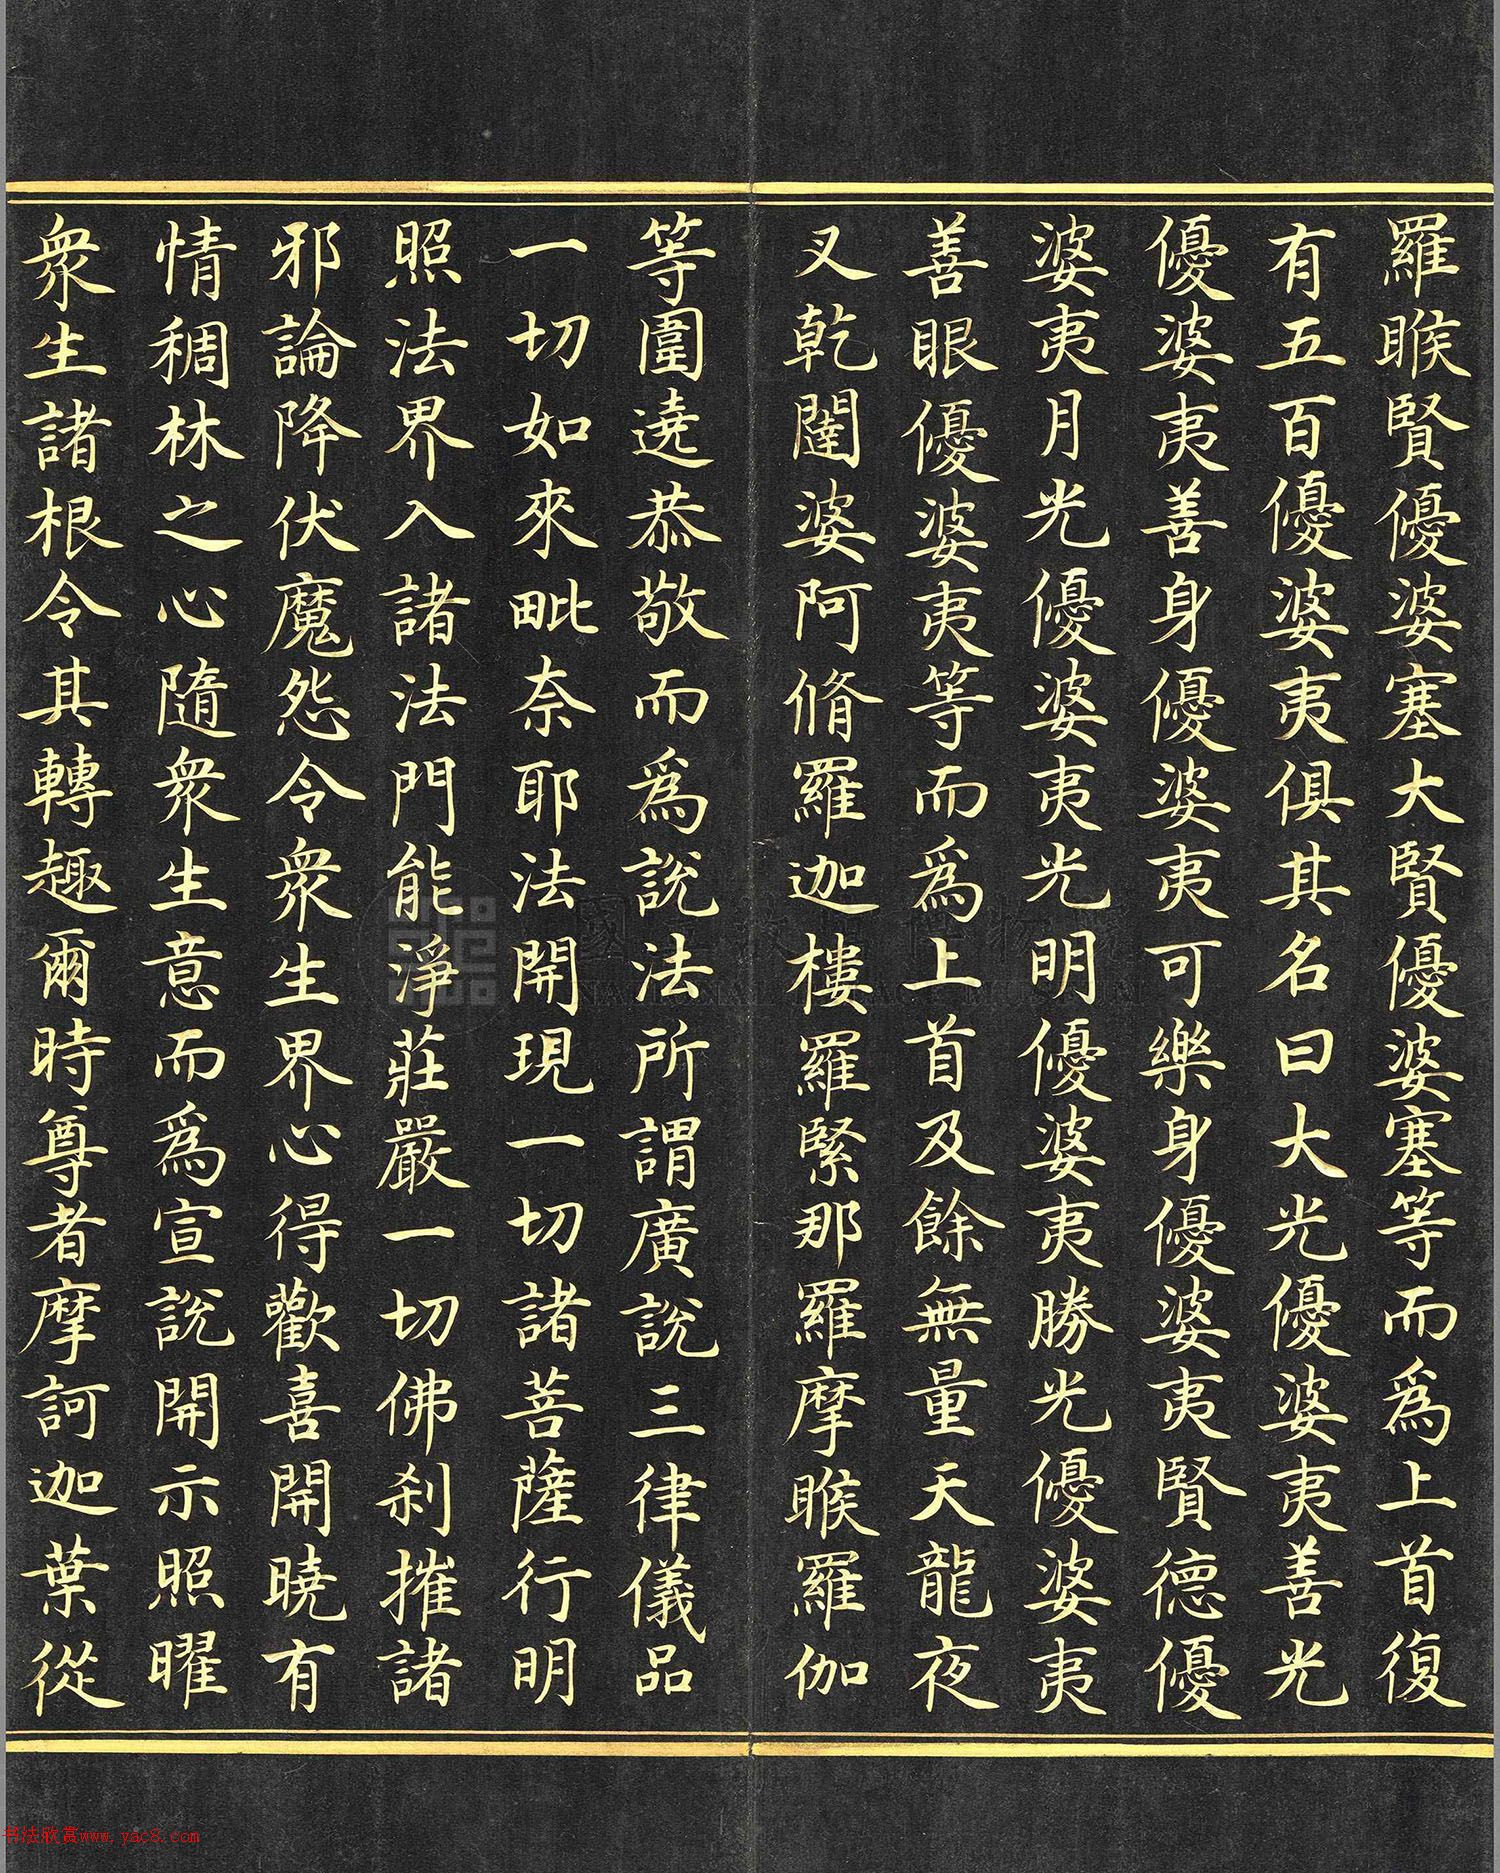 羅睺賢優婆塞大賢優婆塞等而爲上首復
有五百優婆夷俱其名曰大光優婆夷善光
優婆夷善身優婆夷可樂身優婆夷賢德優
婆夷月光優婆夷光明優婆夷勝光優婆夷
善眼優婆夷等而爲上首及餘無量天龍夜
叉乾闥婆阿脩羅迦樓羅緊那羅摩睺羅伽
等圍遶恭敬而爲說法所謂廣說三律儀品
一切如來毗奈耶法開現一切諸菩薩行明
照法界入諸法門能淨莊嚴一切佛刹摧諸
邪論降伏魔怨令衆生界心得歡喜開曉有
情稠林之心隨衆生意而爲宣說開示照曜
衆生諸根令其轉趣爾時尊者摩訶迦葉從
NATIONAL PALACE MUSEUM
书法欣赏www.yac8.com